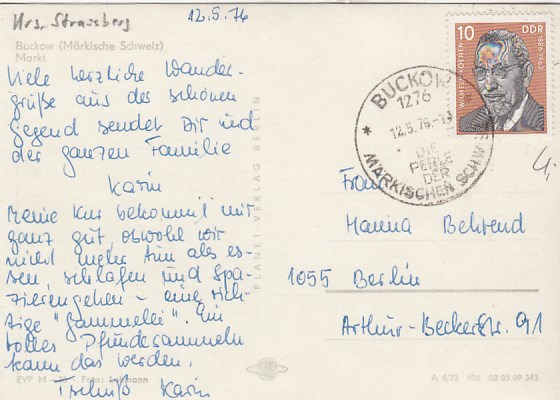 Krs. Strausberg
12.5.76
Buckow (Märkische Schweiz)
Markt
Viele herzliche Wander-
grüße aus der schönen
Gegend sendet Dir und
der ganzen Familie
Karin
Meine Kur bekommt mir
ganz gut, obwohl wir
nicht mehr tun als es-
sen, schlafen und Spa-
zierengehen – eine rich-
tige "Gammelei". Ein
tolles Pfundesammeln
kann das werden.
Tschüß Karin
EVP M Foto: Lehmann
PLANET-VERLAG BERLIN
10 DDR
1886-1963
WILHELM KOENEN
BUCKOW
1276
12.5.76
DIE
PERLE
DER
MÄRKISCHEN SCHW
Frau
Hanna Behrend
1055 Berlin
Arthur-Beckerstr. 91
A 4/75 608 02 05 09 343